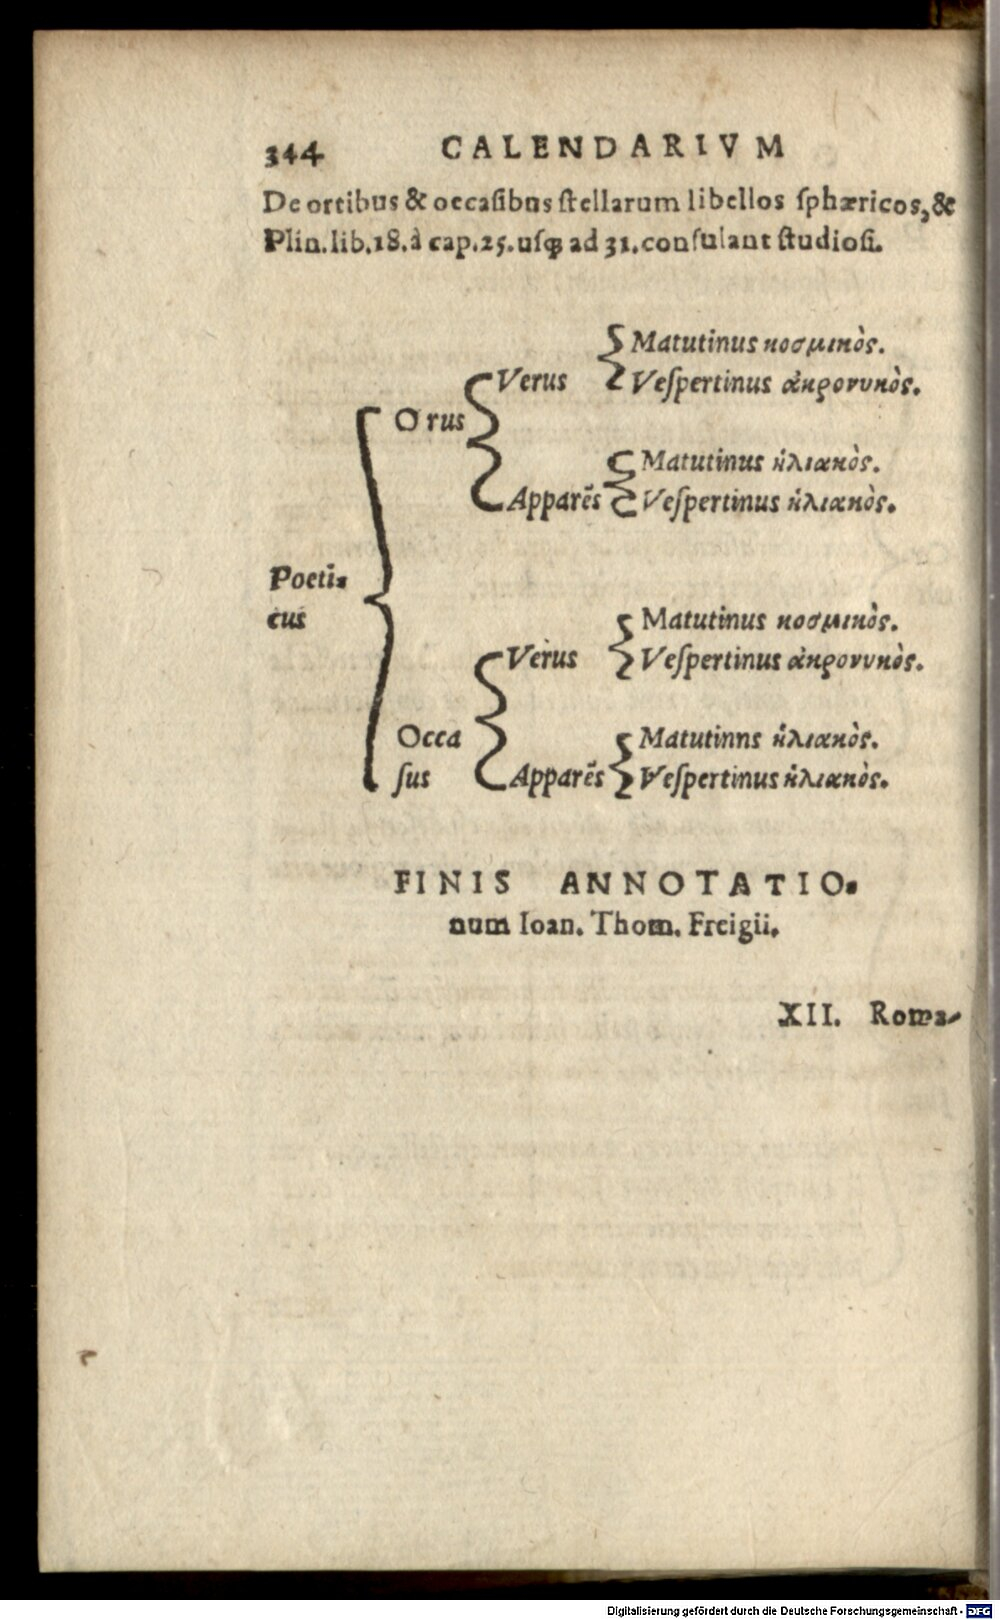 344 CALENDARIVM
De ortibus & occasibus stellarum libellos sphæricos, &
Plin. lib. 18. à cap. 25. usq; ad 31. consulant studiosi.
Matutinus κοσμικὸς.
Verus
Vespertinus ἀκρονυκὸς.
Orus
Matutinus ἡλιακὸς.
Apparēs
Vespertinus ἡλιακὸς.
Poeti-
cus
Matutinus κοσμικὸς.
Verus
Vespertinus ἀκρονυκὸς.
Occa
sus
Matutinns ἡλιακὸς.
Apparēs
Vespertinus ἡλιακὸς.
FINIS ANNOTATIO-
num Ioan. Thom. Freigii.
XII. Roma-
Digitalisierung gefördert durch die Deutsche Forschungsgemeinschaft - DFG